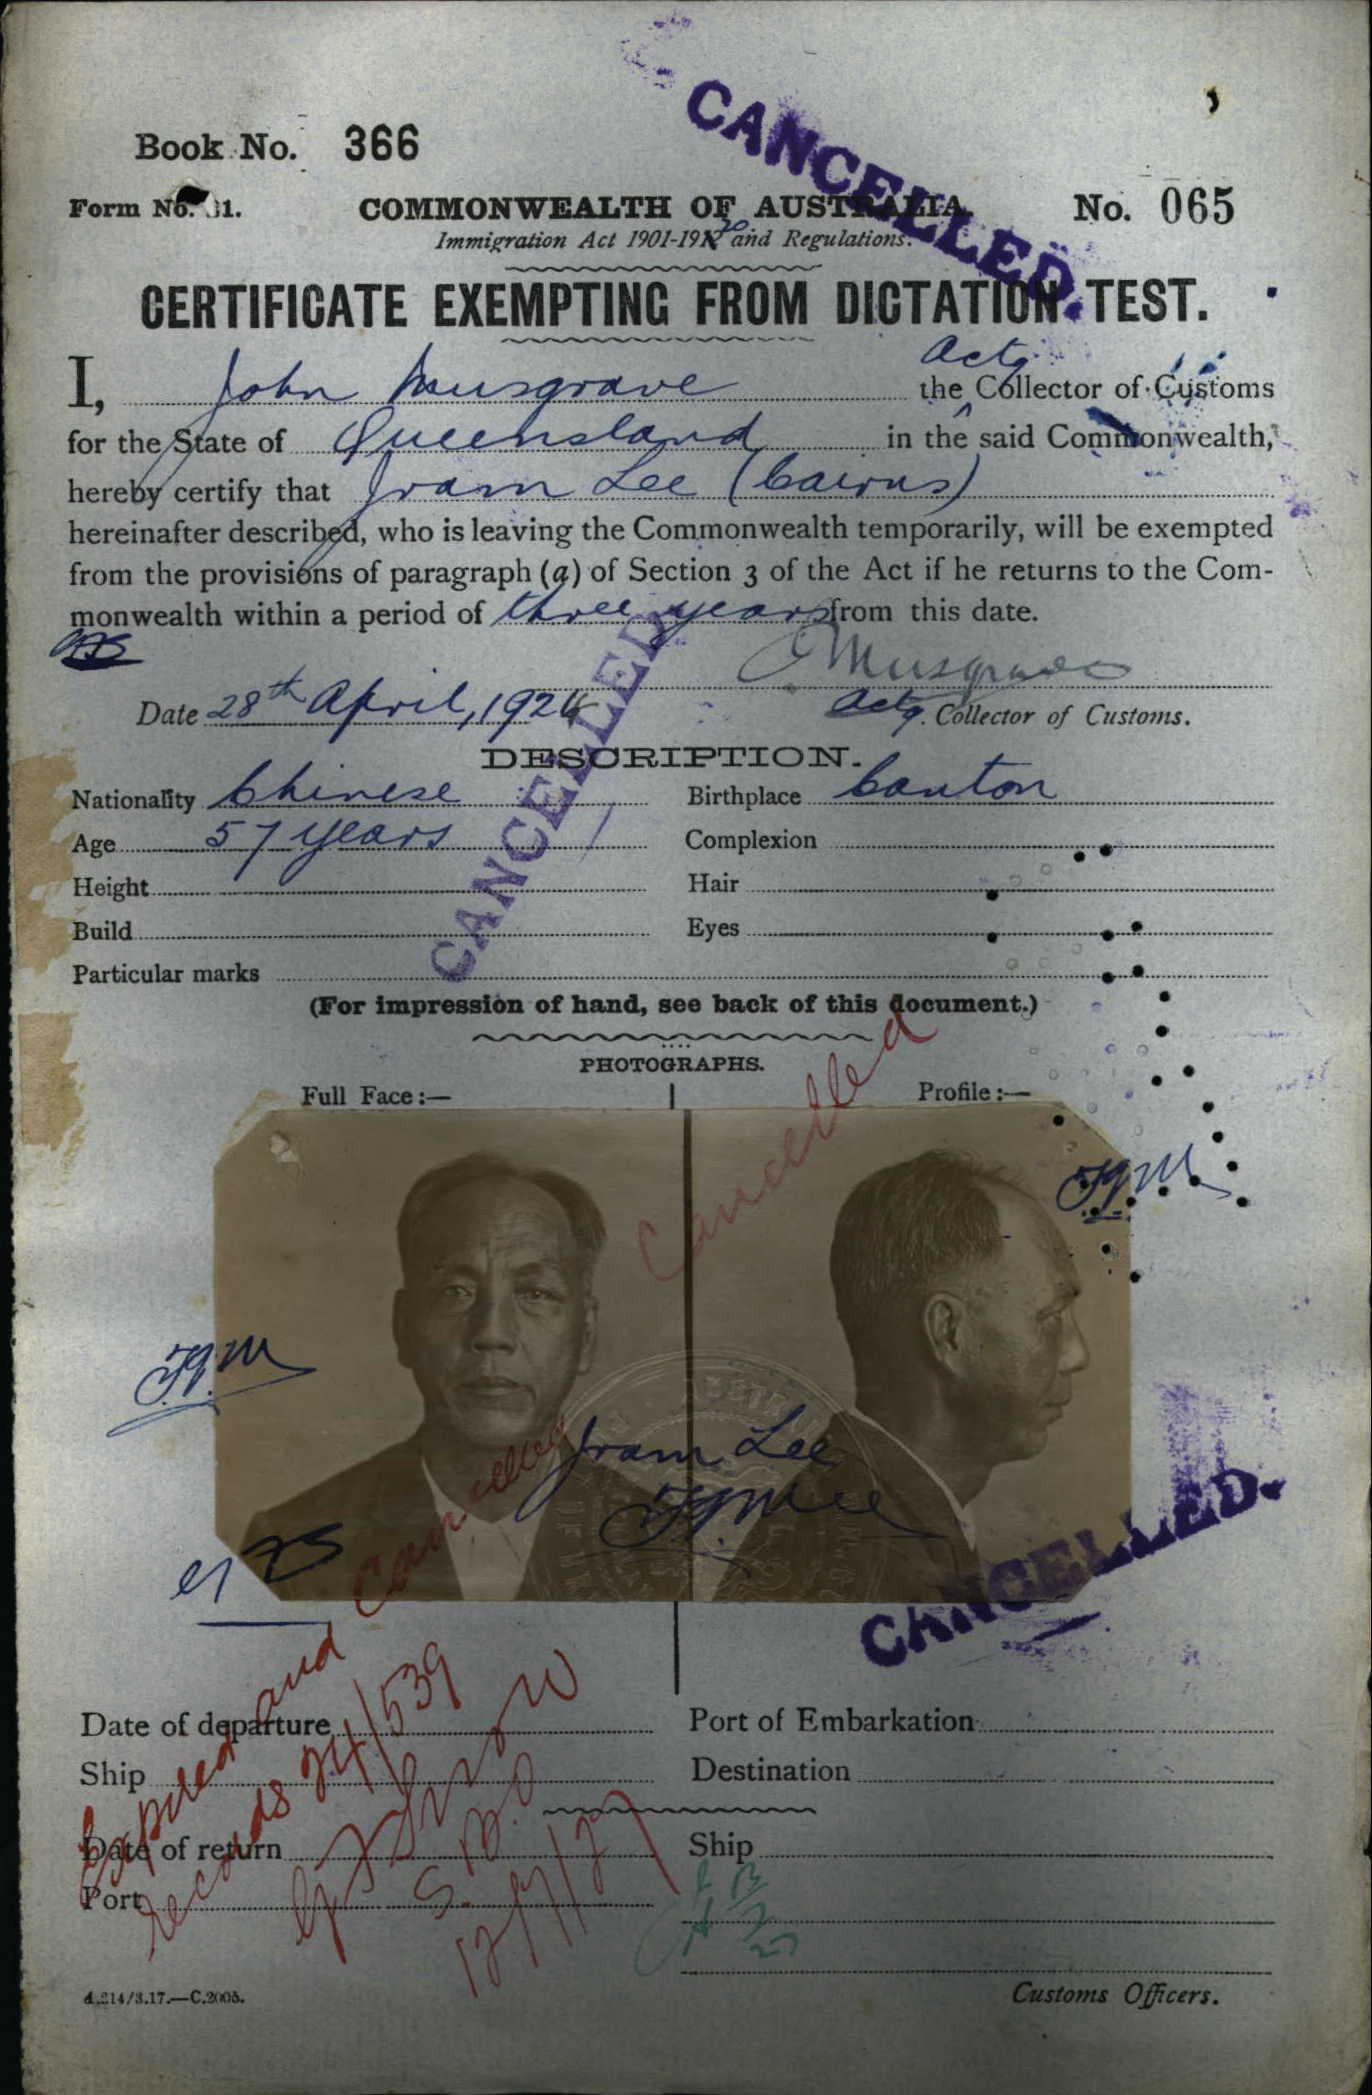 CANCELLED.
Book No. 366
Form No. 1.
COMMONWEALTH OF AUSTRALIA.
No. 065
Immigration Act 1901-1912 20 and Regulations.
CERTIFICATE EXEMPTING FROM DICTATION TEST.
Actg
I, John Musgrave the Collector of Customs
for the State of Queensland in the said Commonwealth,
hereby certify that Jram Lee (Cairns)
hereinafter described, who is leaving the Commonwealth temporarily, will be exempted
from the provisions of paragraph (a) of Section 3 of the Act if he returns to the Com-
monwealth within a period of three years from this date.
J Musgrave
Date 28th April, 1924
Actg. Collector of Customs.
CANCELLED
DESCRIPTION.
Nationality Chinese Birthplace Canton
Age 57 years Complexion
Height Hair
Build Eyes
Particular marks
(For impression of hand, see back of this document.)
PHOTOGRAPHS.
Full Face:— Profile:—
Cancelled
Jram Lee
Cancelled
CANCELLED.
Date of departure Port of Embarkation
Ship Destination
Date of return Ship
Port
Expired and
records 24/539
12/7/27
4.214/3.17.—C.2005.
Customs Officers.